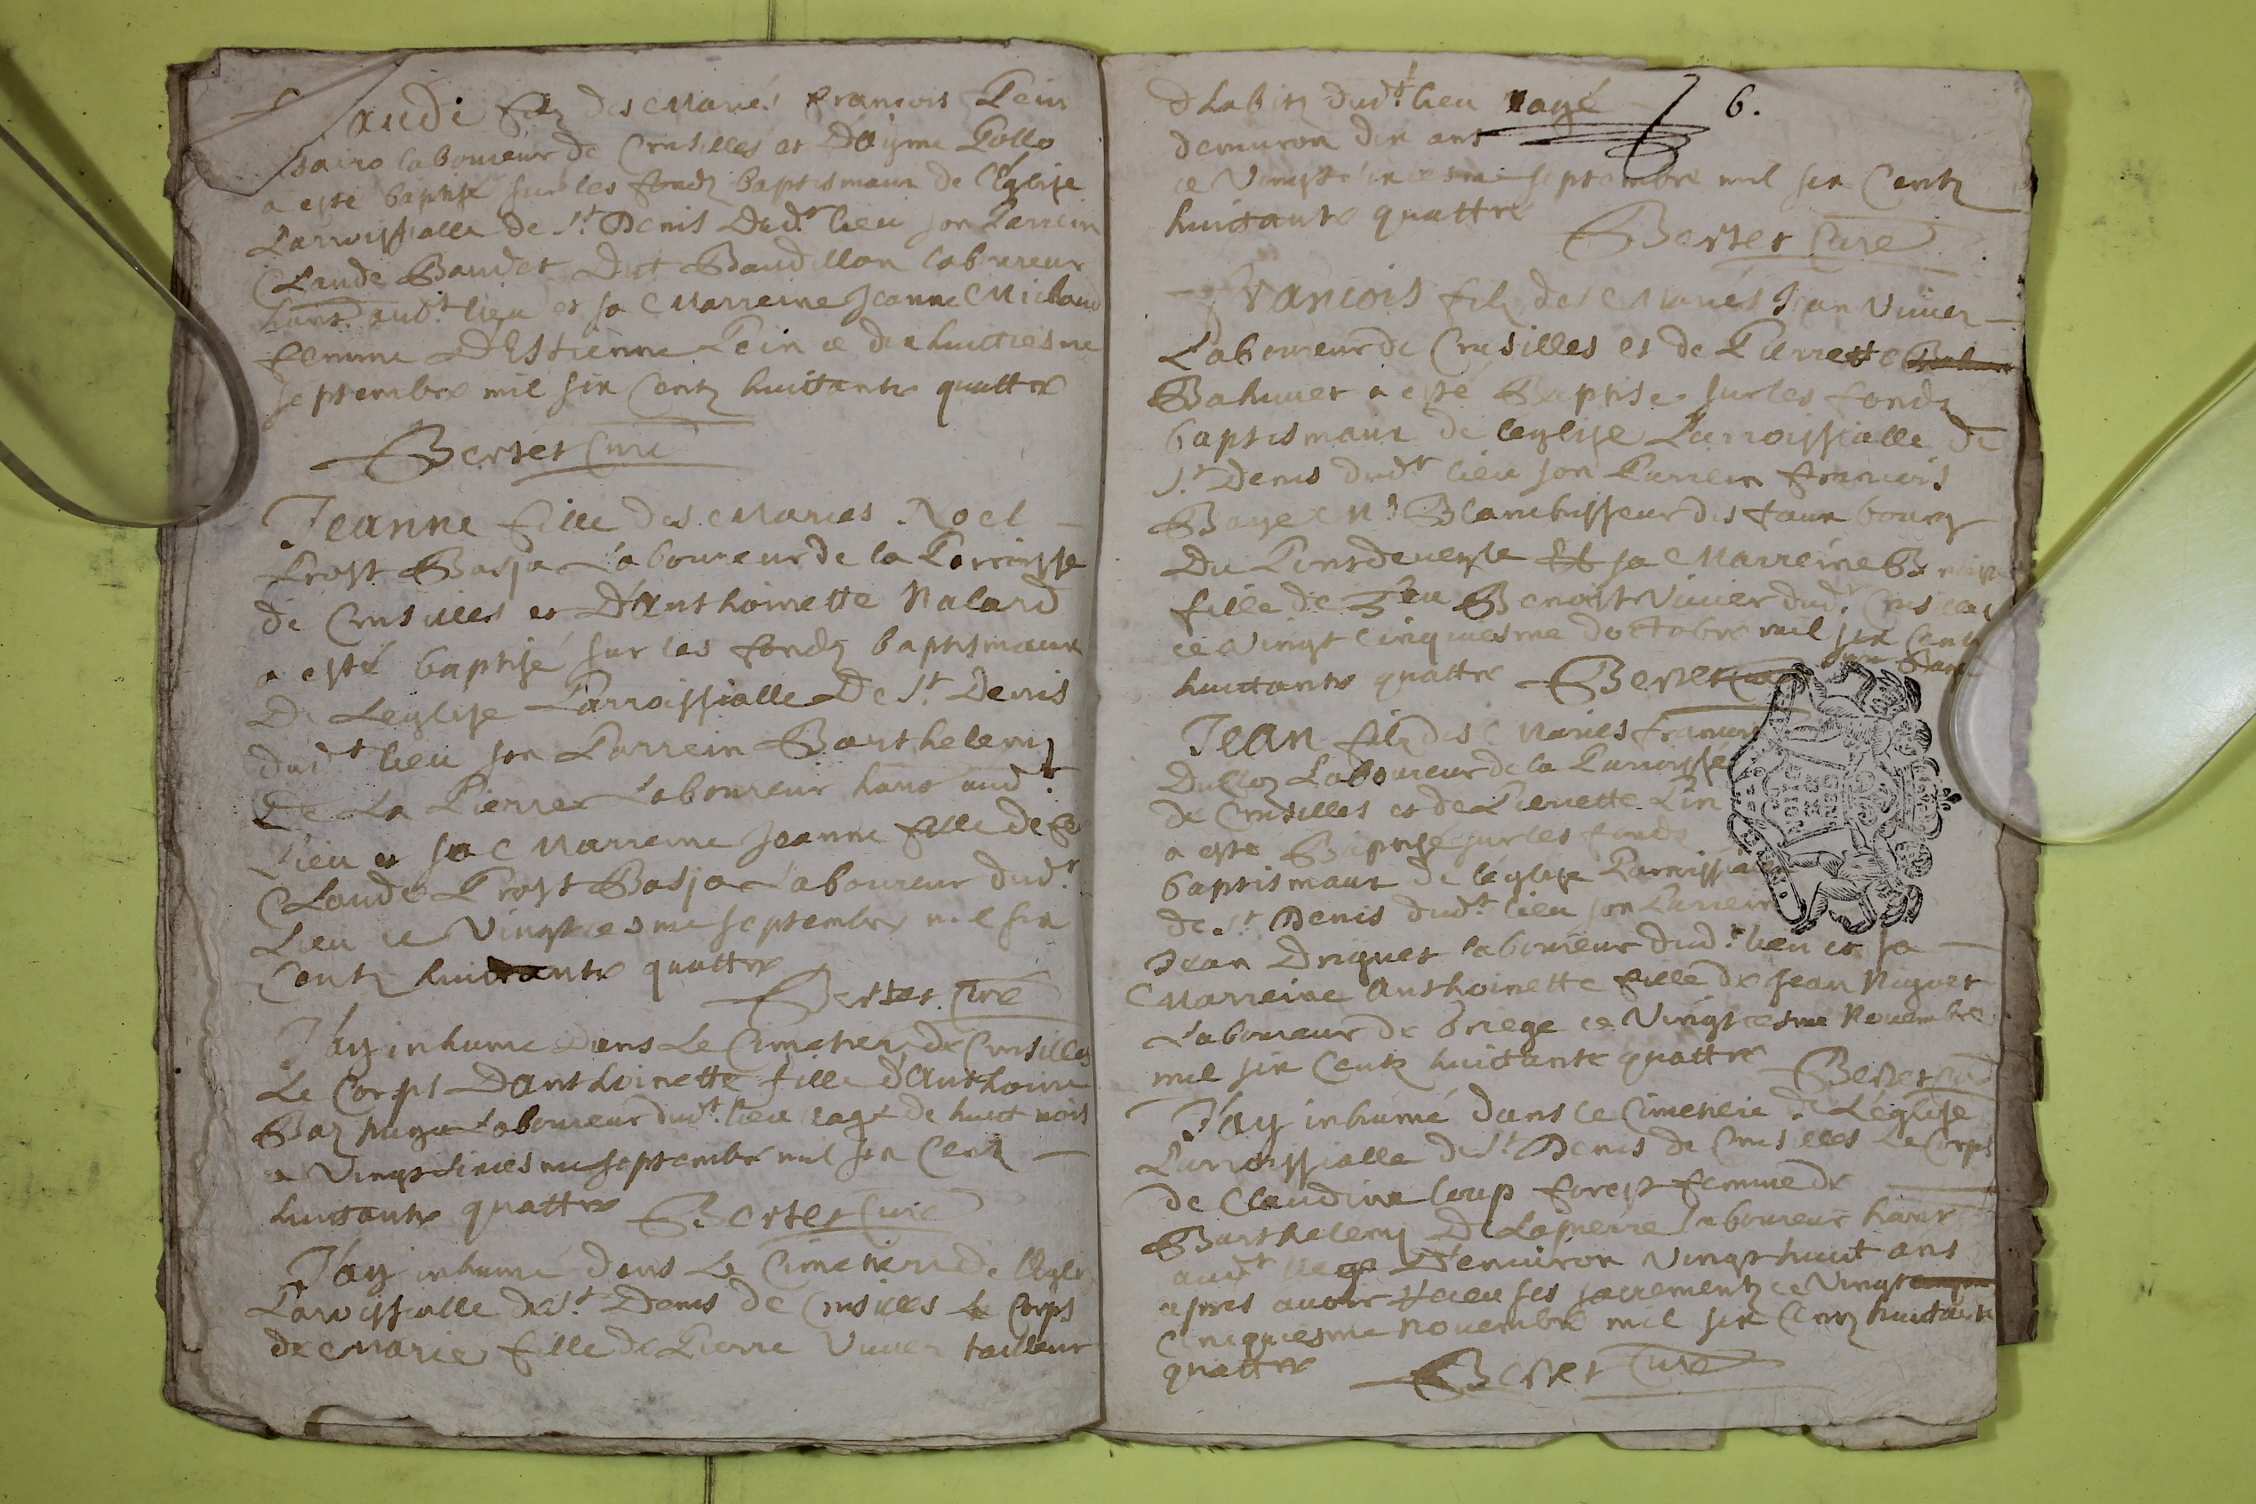 audi filz des Mariés François Pein
saire laboureur de Crusilles et Daÿme Pollo
a esté baptisé sur les fondz baptismaux de l'Eglise
Parroissialle de St. Denis Dudt. lieu son Parrein
Claude Baudet Dit Baudillon laboureur
hant. audt. lieu et sa Marreine Jeanne Michaud
femme D'Estienne Pein ce dix huictiesme
septembre mil six Centz huittante quattre
Bertet Curé
Jeanne fille des Maries Noel
Prost Basja Laboureur de la Parroisse
de Crusilles et D'Anthoinette Nalard
a esté baptisé sur les fondz baptismaux
De Leglise Parroissialle De St. Denis
dudt lieu son Parrein Barthelemj
De La Pierre Laboureur hant audt.
Lieu et sa Marreine Jeanne fille de
Claude Prost Basja Laboureur dudt.
Lieu ce Vingtiesme septembre mil six
Centz huittante quattre
Bertet Curé
J'ay inhumé Dans Le Cimetier de Crusilles
Le Corps D'anthoinette fille d'Anthoine
Laboureur dudt. lieu eage de huict mois
septembre mil six Centz
huittante quattre Bertet Curé
J'ay inhumé Dans Le Cimetiere de
Parroissialle de St. Denis de Crusilles Le Corps
de Marie fille de Pierre Vivier tailleur
d habitz dudt. lieu eagé 6.
denviron dix ans
ce Vingt septembre mil six Centz
huittante quattre
Bertet Curé
François filz des Mariés Jean Vivier
Laboureur de Crusilles et de Pierrette
Bahuvet a esté Baptisé sur les fondz
baptismaux de leglise Parroissialle de
St. Denis dudt lieu son Parrein françois
Baye Blanchisseur des faux bourg
Du Pont de veyle Et sa Marreine
fille de feu Benoist Vivier dudt. Crusilles
ce Vingt Cinquiesme doctobre mil six Centz
huittante quattre Bertet
Jean filz des Maries françois
Laboureur de la Parroisse
de Crusilles et de Pierrette Pin
a esté Baptisé sur les fondz
baptismaux de leglise Parroissialle
de St. Denis dudt. lieu son Parrein
Jean Driguet laboureur dudt. lieu et sa
Marreine Anthoinette fille de Jean Niguet
Laboureur de Briege ce Vingtiesme Novembre
mil six Centz huittante quattre Bertet Curé
J'ay inhumé dans le Cimetiere de L'église
Parroissialle de St. Denis de Crusilles Le Corps
de Claudine Loup forest femme de
Barthelemj De Lapierre laboureur hant
audt lieu D'environ vingt huict ans
apres avoir receu ses sacrementz ce Vingt
Cinquiesme novembre mil six Centz huittante
quattre Bertet Curé